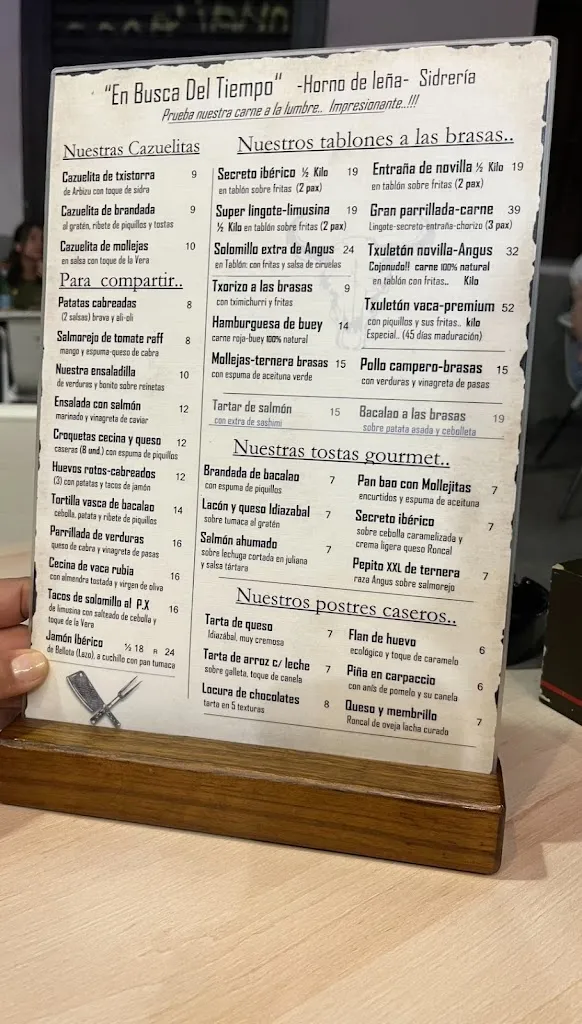 "En Busca Del Tiempo" -Horno de leña- Sidrería
Prueba nuestra carne a la lumbre.. Impresionante..!!!
Nuestras Cazuelitas
Cazuelita de txistorra 9
de Arbizu con toque de sidra
Cazuelita de brandada 9
al gratén, ribete de piquillos y tostas
Cazuelita de mollejas 10
en salsa con toque de la Vera
Para compartir..
Patatas cabreadas 8
(2 salsas) brava y ali-oli
Salmorejo de tomate raff 8
mango y espuma-queso de cabra
Nuestra ensaladilla 10
de verduras y bonito sobre reinetas
Ensalada con salmón 12
marinado y vinagreta de caviar
Croquetas cecina y queso 12
caseras (8 und.) con espuma de piquillos
Huevos rotos-cabreados 12
(3) con patatas y tacos de jamón
Tortilla vasca de bacalao 14
cebolla, patata y ribete de piquillos
Parrillada de verduras 16
queso de cabra y vinagreta de pasas
Cecina de vaca rubia 16
con almendra tostada y virgen de oliva
Tacos de solomillo al P.X 16
de limusina con salteado de cebolla y
toque de la Vera
Jamón Ibérico ½ 18 R 24
de Bellota (Lazo), a cuchillo con pan tumaca
Nuestros tablones a las brasas..
Secreto ibérico ½ Kilo 19
en tablón sobre fritas (2 pax)
Super lingote-limusina 19
½ Kilo en tablón sobre fritas (2 pax)
Solomillo extra de Angus 24
en Tablón: con fritas y salsa de ciruelas
Txorizo a las brasas 9
con tximichurri y fritas
Hamburguesa de buey 14
carne roja-buey 100% natural
Mollejas-ternera brasas 15
con espuma de aceituna verde
Tartar de salmón 15
con extra de sashimi
Entraña de novilla ½ Kilo 19
en tablón sobre fritas (2 pax)
Gran parrillada-carne 39
Lingote-secreto-entraña-chorizo (3 pax)
Txuletón novilla-Angus 32
Cojonudo!! carne 100% natural
en tablón con fritas.. Kilo
Txuletón vaca-premium 52
con piquillos y sus fritas.. kilo
Especial.. (45 días maduración)
Pollo campero-brasas 15
con verduras y vinagreta de pasas
Bacalao a las brasas 19
sobre patata asada y cebolleta
Nuestras tostas gourmet..
Brandada de bacalao 7
con espuma de piquillos
Lacón y queso Idiazabal 7
sobre tumaca al gratén
Salmón ahumado 7
sobre lechuga cortada en juliana
y salsa tártara
Pan bao con Mollejitas 7
encurtidos y espuma de aceituna
Secreto ibérico 7
sobre cebolla caramelizada y
crema ligera queso Roncal
Pepito XXL de ternera 7
raza Angus sobre salmorejo
Nuestros postres caseros..
Tarta de queso 7
Idiazábal, muy cremosa
Tarta de arroz c/ leche 7
sobre galleta, toque de canela
Locura de chocolates 8
tarta en 5 texturas
Flan de huevo 6
ecológico y toque de caramelo
Piña en carpaccio 6
con anís de pomelo y su canela
Queso y membrillo 7
Roncal de oveja lacha curado